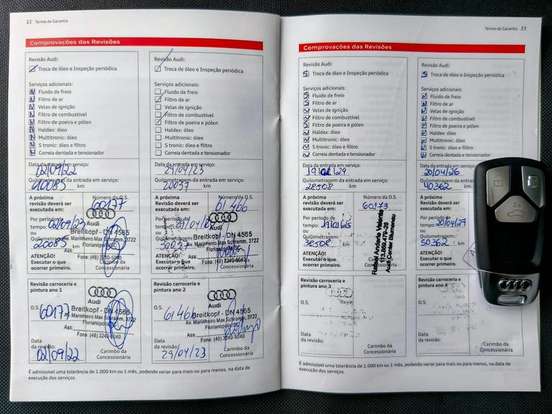 22 Termo de Garantia
Comprovações das Revisões
Revisão Audi:
Troca de óleo e Inspeção periódica
Serviços adicionais:
Fluido de freio
Filtro de ar
Velas de ignição
Filtro de combustível
Filtro de poeira e pólen
Haldex: óleo
Multitronic: óleo
S tronic: óleo e filtro
Correia dentada e tensionador
Data da entrada em serviço:
02/09/22
Quilometragem da entrada em serviço:
km
A próxima
revisão deverá ser
executada em:
Número da O.S.
60177
Por período de
tempo:
ou
Quilometragem:
km
ATENÇÃO!
Executar o que
ocorrer primeiro.
Audi
Breitkopf - DN 4565
Revisão carroceria e
pintura ano 1
O.S.
60177
Audi
Breitkopf - DN 4565
Data
da revisão:
02/09/22
Carimbo da
Concessionária
Revisão Audi:
Troca de óleo e Inspeção periódica
Serviços adicionais:
Fluido de freio
Filtro de ar
Velas de ignição
Filtro de combustível
Filtro de poeira e pólen
Haldex: óleo
Multitronic: óleo
S tronic: óleo e filtro
Correia dentada e tensionador
Data da entrada em serviço:
29/04/23
Quilometragem da entrada em serviço:
20037 km
A próxima
revisão deverá ser
executada em:
Número da O.S.
61466
Por período de
tempo:
ou
Quilometragem:
km
ATENÇÃO!
Executar o que
ocorrer primeiro.
Audi
Breitkopf - DN 4565
Revisão carroceria e
pintura ano 2
O.S.
61466
Audi
Breitkopf - DN 4565
Data
da revisão:
29/04/23
Carimbo da
Concessionária
É admissível uma tolerância de 1.000 km ou 1 mês, podendo variar para mais ou para menos, na data de
execução dos serviços.
Termo de Garantia 23
Comprovações das Revisões
Revisão Audi:
Troca de óleo e Inspeção periódica
Serviços adicionais:
Fluido de freio
Filtro de ar
Velas de ignição
Filtro de combustível
Filtro de poeira e pólen
Haldex: óleo
Multitronic: óleo
S tronic: óleo e filtro
Correia dentada e tensionador
Data da entrada em serviço:
Quilometragem da entrada em serviço:
28508 km
A próxima
revisão deverá ser
executada em:
Número da O.S.
Por período de
tempo:
ou
Quilometragem:
38508 km
ATENÇÃO!
Executar o que
ocorrer primeiro.
Revisão carroceria e
pintura ano 3
O.S.
Data
da revisão:
Carimbo da
Concessionária
Revisão Audi:
Troca de óleo e Inspeção periódica
Serviços adicionais:
Fluido de freio
Filtro de ar
Velas de ignição
Filtro de combustível
Filtro de poeira e pólen
Haldex: óleo
Multitronic: óleo
S tronic: óleo e filtro
Correia dentada e tensionador
Data da entrada em serviço:
Quilometragem da entrada em serviço:
40362 km
A próxima
revisão deverá ser
executada em:
Por período de
tempo:
ou
Quilometragem:
50362 km
ATENÇÃO!
Executar o que
ocorrer primeiro.
Revisão carroceria e
O.S.
Data
da revisão:
Carimbo da
Concessionária
É admissível uma tolerância de 1.000 km ou 1 mês, podendo variar para mais ou para menos, na data de
execução dos serviços.